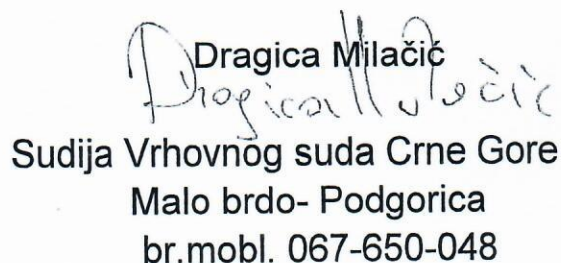 Dragica Milačić
Dragica Milačić
Sudija Vrhovnog suda Crne Gore
Malo brdo- Podgorica
br.mobl. 067-650-048